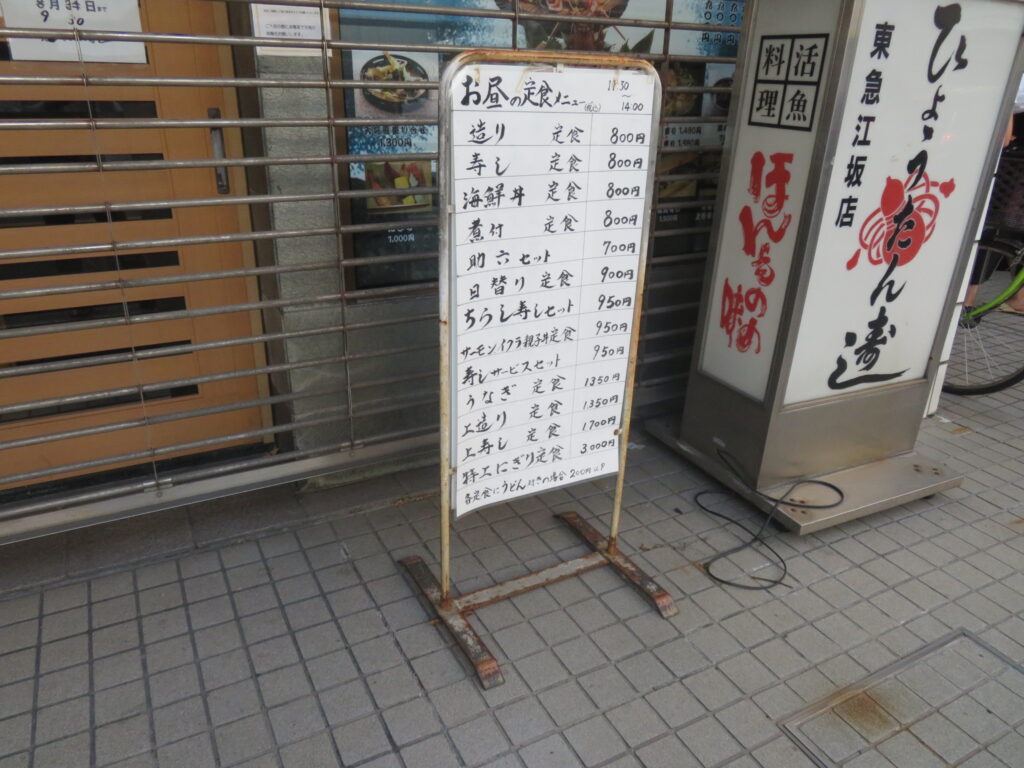 お昼の定食メニュー(税込) 11:30～14:00
造り 定食 800円
寿し 定食 800円
海鮮丼 定食 800円
煮付 定食 800円
助六セット 700円
日替り 定食 900円
ちらし寿しセット 950円
サーモンイクラ親子丼定食 950円
寿しサービスセット 950円
うなぎ 定食 1350円
上造り 定食 1350円
上寿し 定食 1700円
特上にぎり定食 3,000円
各定食にうどん付きの場合 200円UP
活魚料理
ほんまもの味
ひょうたん寿し
東急江坂店
1,300円
1,000円
9 30